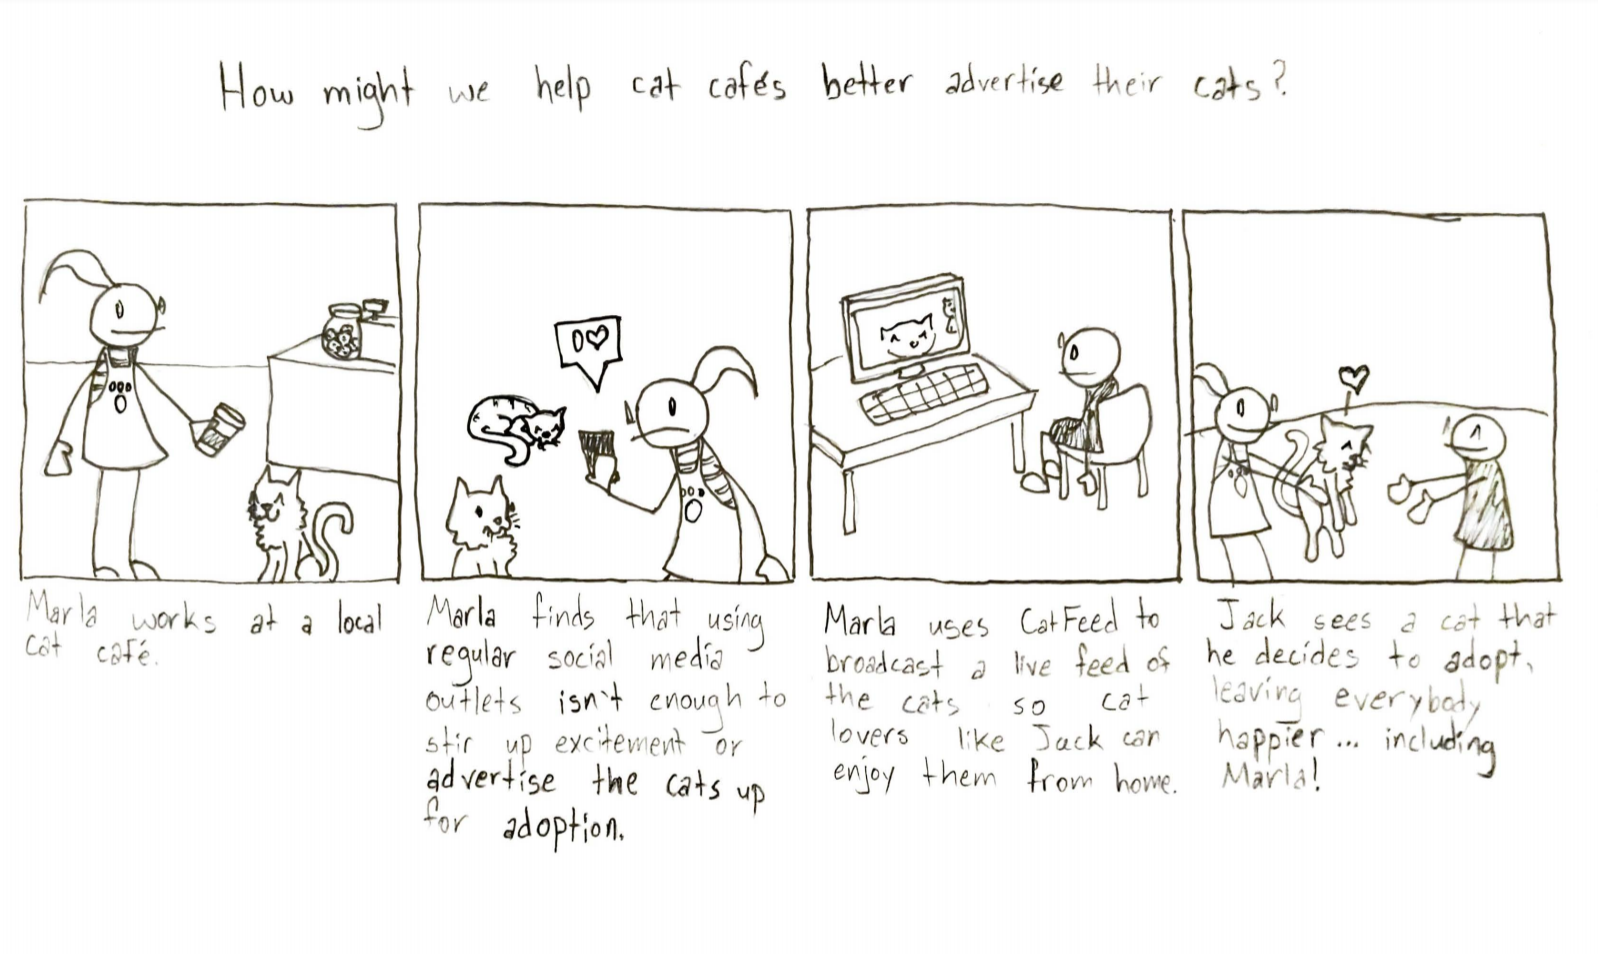 How might we help cat cafés better advertise their cats?
0♡
Marla works at a local
cat café.
Marla finds that using
regular social media
outlets isn't enough to
stir up excitement or
advertise the cats up
for adoption.
Marla uses CatFeed to
broadcast a live feed of
the cats so cat
lovers like Jack can
enjoy them from home.
Jack sees a cat that
he decides to adopt,
leaving everybody
happier... including
Marla!